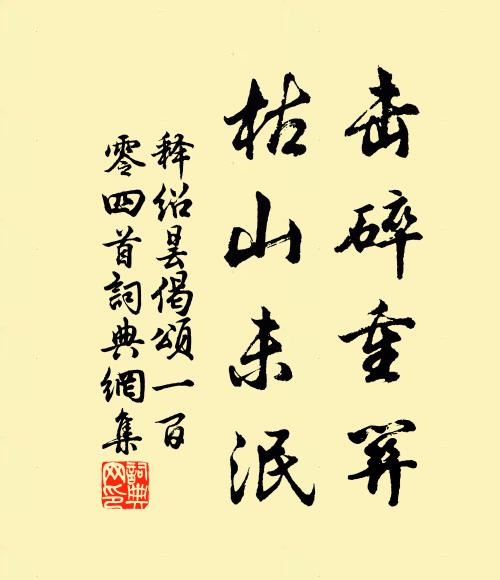 击碎重关
枯山未泯
释绍昙偈颂一百
零四首詞典網集
詞典
网印